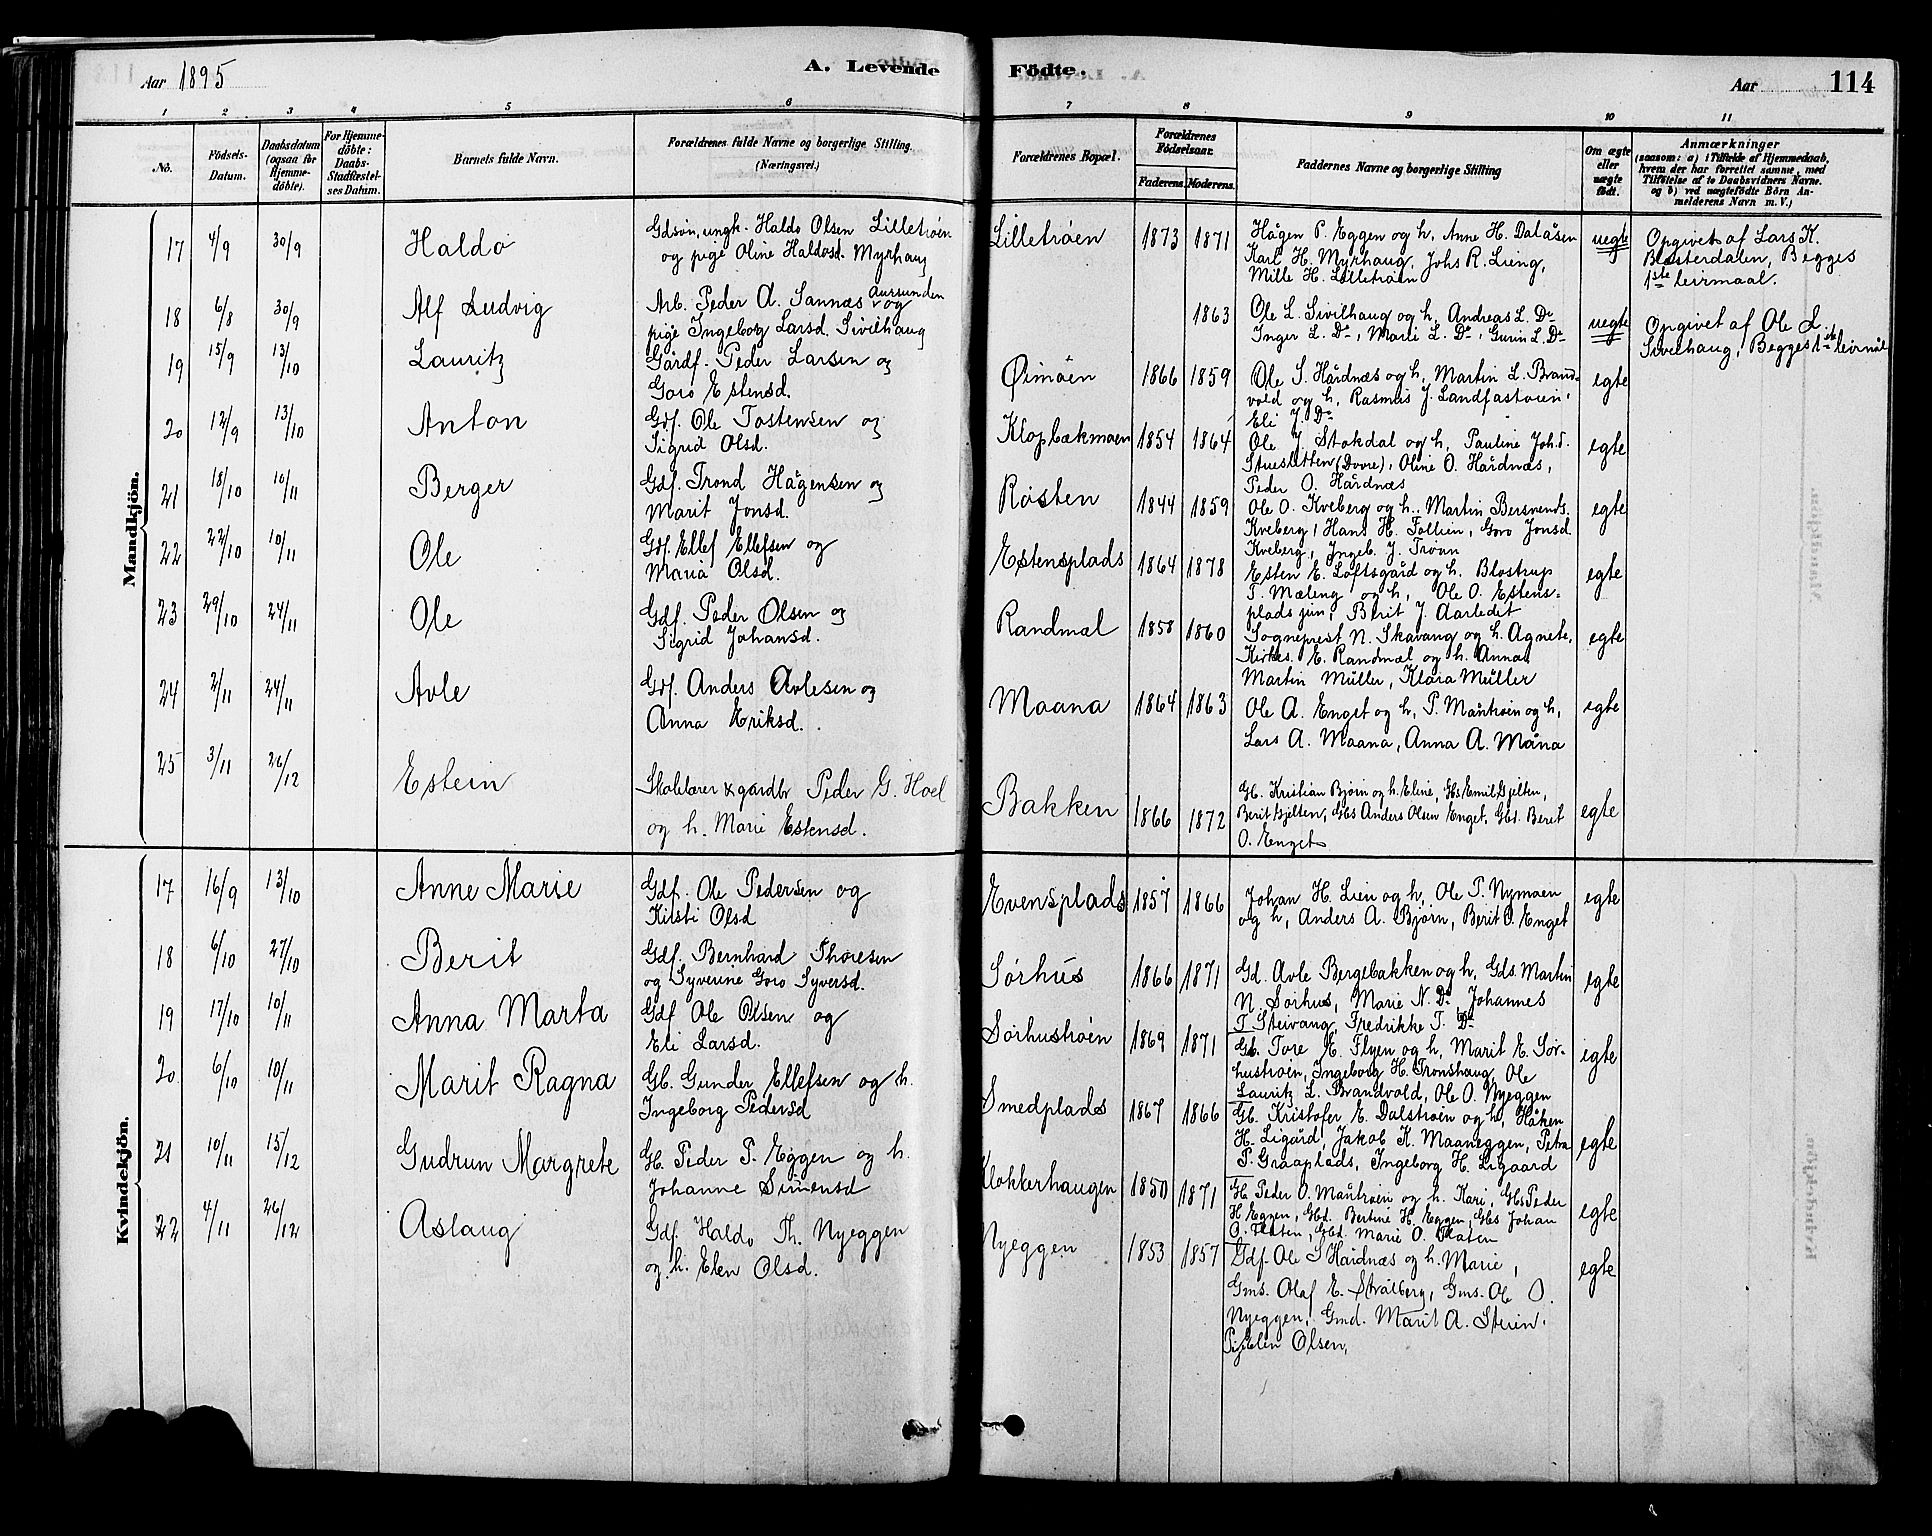 Aar 1895
A. Levende
1 2 3 4 5 6
No.
Födsels-Datum.
Daabsdatum (ogsaa för Hjemmedöbte).
For Hjemmedöbte: Daabs-Stadfæstelses Datum.
Barnets fulde Navn.
Forældrenes fulde Navne og borgerlige Stilling. (Næringsvei.)
Mandkjön.
17 4/9 30/9 Haldo Gdsøn, ungk. Haldo Olsen Lilletrøen
og pige Oline Haldosd. Myrhaug
18 6/8 30/9 Alf Ludvig Arb. Peder A. Sannæs Aursunden og
pige Ingeborg Larsd. Sivilhaug
19 15/9 13/10 Lauritz Gårdf. Peder Larsen og
Goro Estensd.
20 12/9 13/10 Anton Gdf. Ole Tostensen og
Sigrid Olsd.
21 18/10 10/11 Berger Gdf. Trond Hågensen og
Marit Jonsd.
22 22/10 10/11 Ole Gdf. Ellef Ellefsen og
Maria Olsd.
23 29/10 24/11 Ole Gdf. Peder Olsen og
Sigrid Johansd.
24 2/11 24/11 Avle Gdf. Anders Avlesen og
Anna Eriksd.
25 3/11 26/12 Estein Skolelærer & gardbr Peder G. Hoel
og h. Marie Estensd.
Kvindekjön.
17 16/9 13/10 Anne Marie Gdf. Ole Pedersen og
Kirsti Olsd
18 6/10 27/10 Berit Gdf. Bernhard Thoresen
og Syverine Goro Syversd.
19 17/10 10/11 Anna Marta Gdf Ole Olsen og
Eli Larsd.
20 6/10 10/11 Marit Ragna Gb. Gunder Ellefsen og h.
Ingeborg Pedersd
21 10/11 15/12 Gudrun Margrete Gb. Peder P. Eggen og h.
Johanne Simensd
22 4/11 26/12 Aslaug Gdf. Haldo Th. Nyeggen
og h. Elen Olsd.
Födte.
Aar
114
7 8 9 10 11
Forældrenes Bopæl.
Forældrenes Födselsaar.
Faderens. Moderens.
Faddernes Navne og borgerlige Stilling
Om ægte eller uægte födt.
Anmærkninger
(saasom: a) i Tilfælde af Hjemmedaab, hvem der har forrettet samme, med Tilföielse af to Daabsvidners Navne. og b) ved uægtefödte Börn Anmelderens Navn m. V.)
Lilletrøen 1873 1871 Hågen P. Eggen og h, Anne H. Dalåsen uegte Opgivet af Lars K.
Karl H. Myrhaug, Johs R. Lieng, Blosterdalen, Begges
Mille H. Lilletrøen 1ste leirmaal.
1863 Ole L. Sivilhaug og h, Andreas L. Do uegte Opgivet af Ole L.
Inger L. Do, Marli L. Do, Gurin L. Do Sivelhaug, Begges 1ste leirmål
Øimoen 1866 1859 Ole S. Hårdnæs og h, Martin L. Brand- egte
vold og h, Rasmus J. Landfastøien,
Eli J. Do
Klopbækmoen 1854 1864 Ole J. Stokdal og h, Pauline Joh.d. egte
Stuesletten (Dovre), Oline O. Hårdnæs,
Peder O. Hårdnæs
Røsten 1844 1859 Ole O. Kveberg og h., Martin Bersvends. egte
Kveberg, Hans H. Tollien, Goro Jonsd
Kveberg, Ingeb. J. Trøan
Estensplads 1864 1878 Esten E. Loftsgård og h. Blostrup egte
T. Mæleng og h, Ole O. Estens-
plads jun, Berit J. Aarledet
Randmæl 1858 1860 Sogneprest N. Skavang og h. Agnete, egte
Kirkes. E. Randmæl og h. Anna,
Martin Müller, Klara Müller
Maana 1864 1863 Ole A. Enget og h, P. Mantrøen og h, egte
Lars A. Maana, Anna A. Måna
Bakken 1866 1872 Gb. Kristian Bjørn og h. Eline, Gbs Emil Gjelten, egte
Berit Gjelten, Gbs Anders Olsen Enget, Gbd. Beret
O. Enget
Evensplads 1857 1866 Johan H. Lien og h, Ole P. Nymoen egte
og h, Anders A. Bjørn, Berit O. Enget
Sørhus 1866 1871 Gd. Avle Bergebakken og h, Gds. Martin egte
N. Sørhus, Marie N. Do, Johannes
T. Steivang, Fredrikke T. Do
Sørhustrøen 1869 1871 Gb. Tore E. Flyen og h, Marit E. Sør- egte
hustrøen, Ingeborg H. Tronshaug, Ole
Lauritz L. Brandvold, Ole O. Nyeggen
Smedplads 1867 1866 Gb. Kristofer E. Dalstrøen og h, Håken egte
H. Ligård, Jakob K. Maaneggen, Petra
P. Graaplads, Ingeborg H. Ligaard
Klokkerhaugen 1850 1871 Gb Peder O. Mantrøen og h. Kari, Gbs Peder egte
H Eggen, Gbd. Bertine H. Eggen, Gbs Johan
O. Flaten, Gbd. Marie O. Flaten
Nyeggen 1853 1857 Gdf. Ole S Hårdnæs og h. Marie, egte
Gms. Olaf E. Strålberg, Gms. Ole O.
Nyeggen, Gmd. Marit A. Steien.
Elen Olsen,